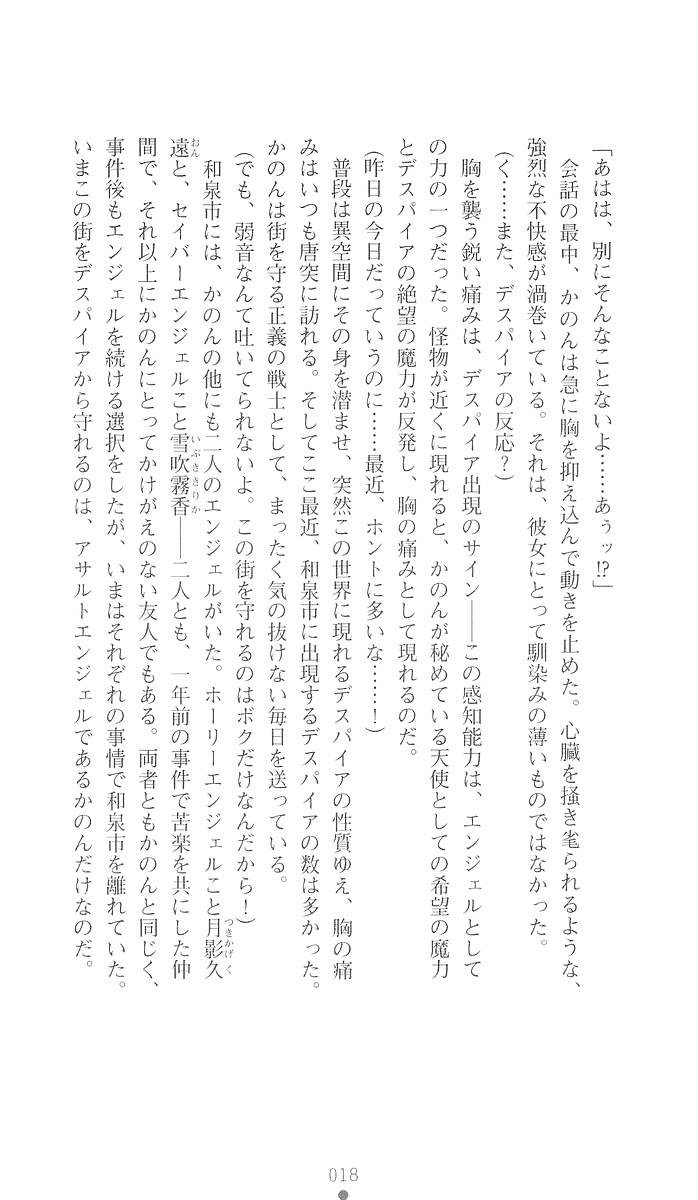 「あはは、別にそんなことないよ……あぅッ!?」
会話の最中、かのんは急に胸を抑え込んで動きを止めた。心臓を掻き毟られるような、
強烈な不快感が渦巻いている。それは、彼女にとって馴染みの薄いものではなかった。
(く……また、デスパイアの反応?)
胸を襲う鋭い痛みは、デスパイア出現のサイン——この感知能力は、エンジェルとして
の力の一つだった。怪物が近くに現れると、かのんが秘めている天使としての希望の魔力
とデスパイアの絶望の魔力が反発し、胸の痛みとして現れるのだ。
(昨日の今日だっていうのに……最近、ホントに多いな……!)
普段は異空間にその身を潜ませ、突然この世界に現れるデスパイアの性質ゆえ、胸の痛
みはいつも唐突に訪れる。そしてここ最近、和泉市に出現するデスパイアの数は多かった。
かのんは街を守る正義の戦士として、まったく気の抜けない毎日を送っている。
(でも、弱音なんて吐いてられないよ。この街を守れるのはボクだけなんだから!)
和泉市には、かのんの他にも二人のエンジェルがいた。ホーリーエンジェルこと月影久
遠と、セイバーエンジェルこと雪吹霧香——二人とも、一年前の事件で苦楽を共にした仲
間で、それ以上にかのんにとってかけがえのない友人でもある。両者ともかのんと同じく、
事件後もエンジェルを続ける選択をしたが、いまはそれぞれの事情で和泉市を離れていた。
いまこの街をデスパイアから守れるのは、アサルトエンジェルであるかのんだけなのだ。
つきかげく
おん
いぶききりか
018